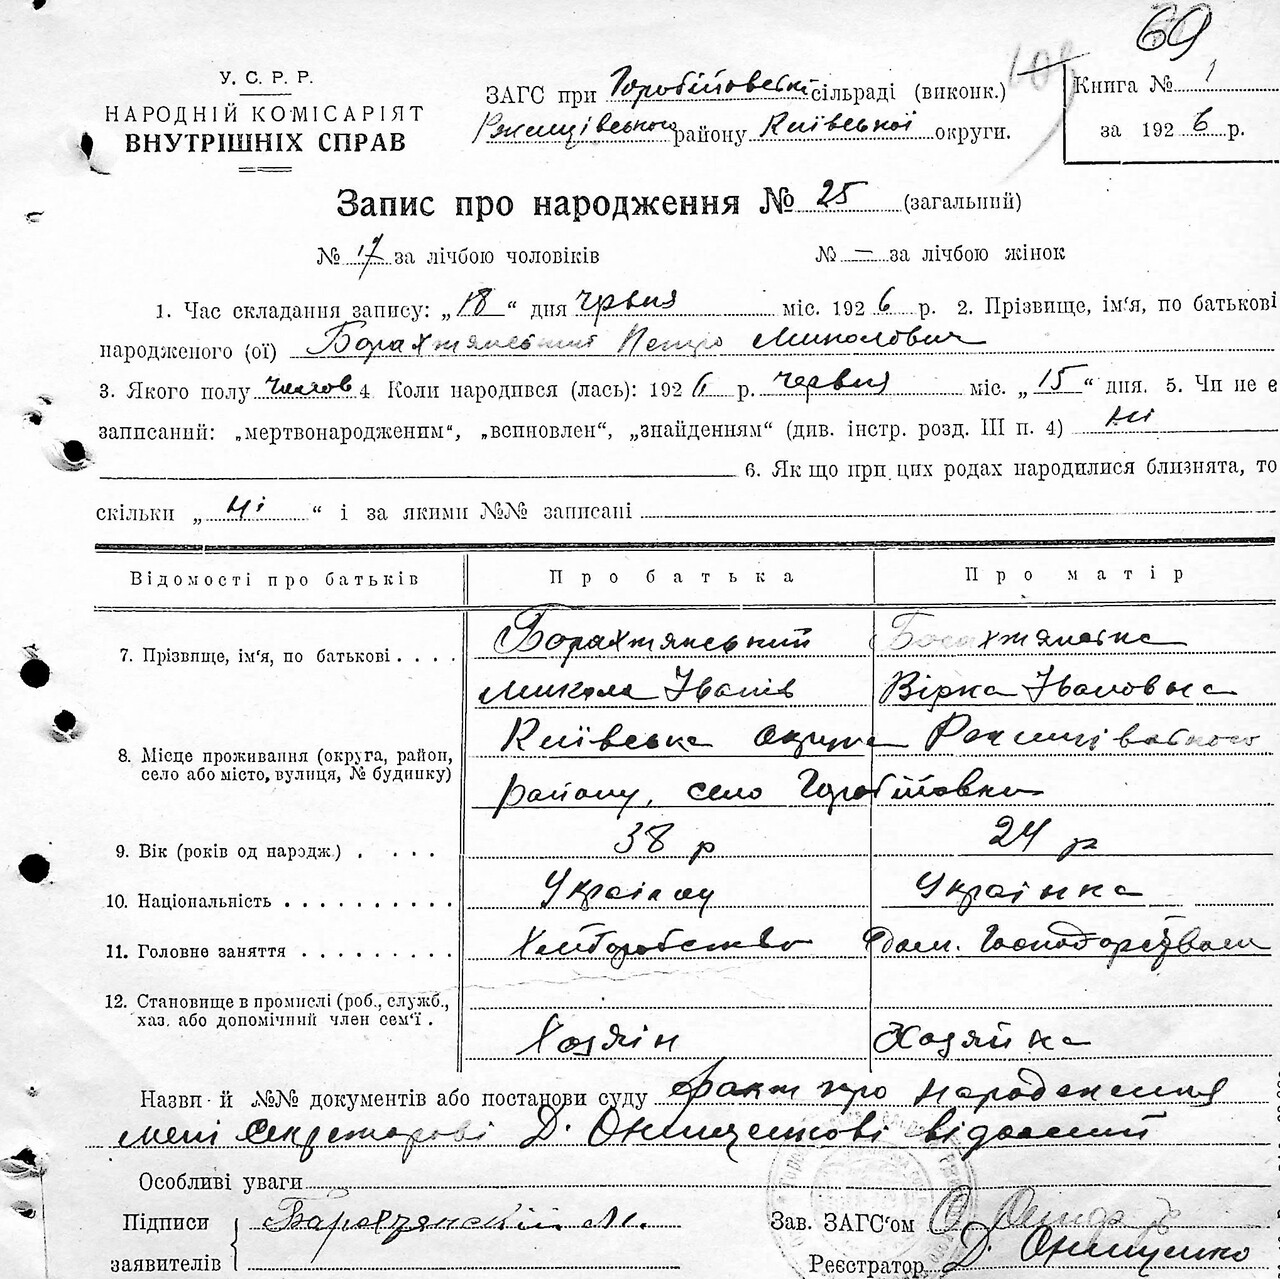 69
У. С. Р. Р.
НАРОДНІЙ КОМІСАРІЯТ
ВНУТРІШНІХ СПРАВ
ЗАГС при Горобіїовській сільраді (виконк.)
Ржищівського району Київської округи.
Книга № 1
за 1926 р.
Запис про народження № 25 (загальний)
№ 17 за лічбою чоловіків № — за лічбою жінок
1. Час складання запису: „18“ дня червня міс. 1926 р. 2. Прізвище, ім‘я, по батькові
народженого (ої) Борахтянський Петро Миколович
3. Якого полу чолов 4. Коли народився (лась): 1926 р. червня міс. „15“ дня. 5. Чи не є
записаний: „мертвонародженим“, „всиновлен“, „знайденням“ (див. інстр. розд. III п. 4) Ні
6. Як що при цих родах народилися близнята, то
скільки „ні“ і за якими №№ записані
Відомості про батьків Про батька Про матір
7. Прізвище, ім‘я, по батькові . . . . Борахтянський Борахтянська
Микола Іванів Вірка Івановна
8. Місце проживання (округа, район, село або місто, вулиця, № будинку) Київська округа Ржищівського
району, село Горобіївка
9. Вік (років од народж.) . . . . . 38 р 24 р
10. Національність . . . . . . . . . . Українец Українка
11. Головне заняття . . . . . . . . . Хліборобство Дом. Господорством
12. Становище в промислі (роб., служб.,
хаз. або допомічний член сем‘ї . Хозяін Хозяйка
Назви й №№ документів або постанови суду Факт про народження
мені секретарові Д. Онищенкові відомий
Особливі уваги
Підписи
заявителів Барахтянский М.
Зав. ЗАГС‘ом
Реєстратор Д. Онищенко